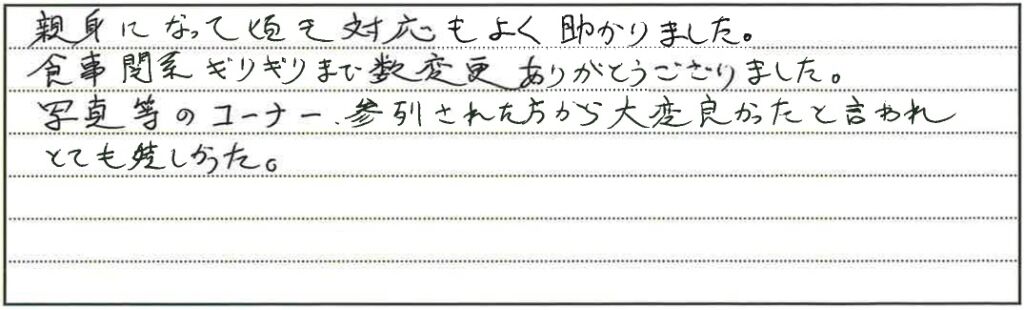 親身になって頂き対応もよく助かりました。
食事関系ギリギリまで数変更ありがとうございました。
写真等のコーナー、参列された方から大変良かったと言われ
とても嬉しかった。